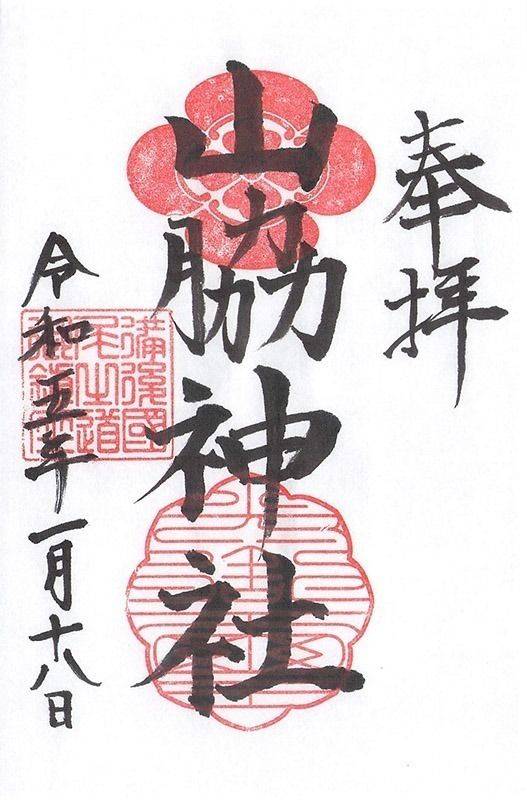 奉拝
山脇神社
令和五年一月十八日
備後國
尾之道